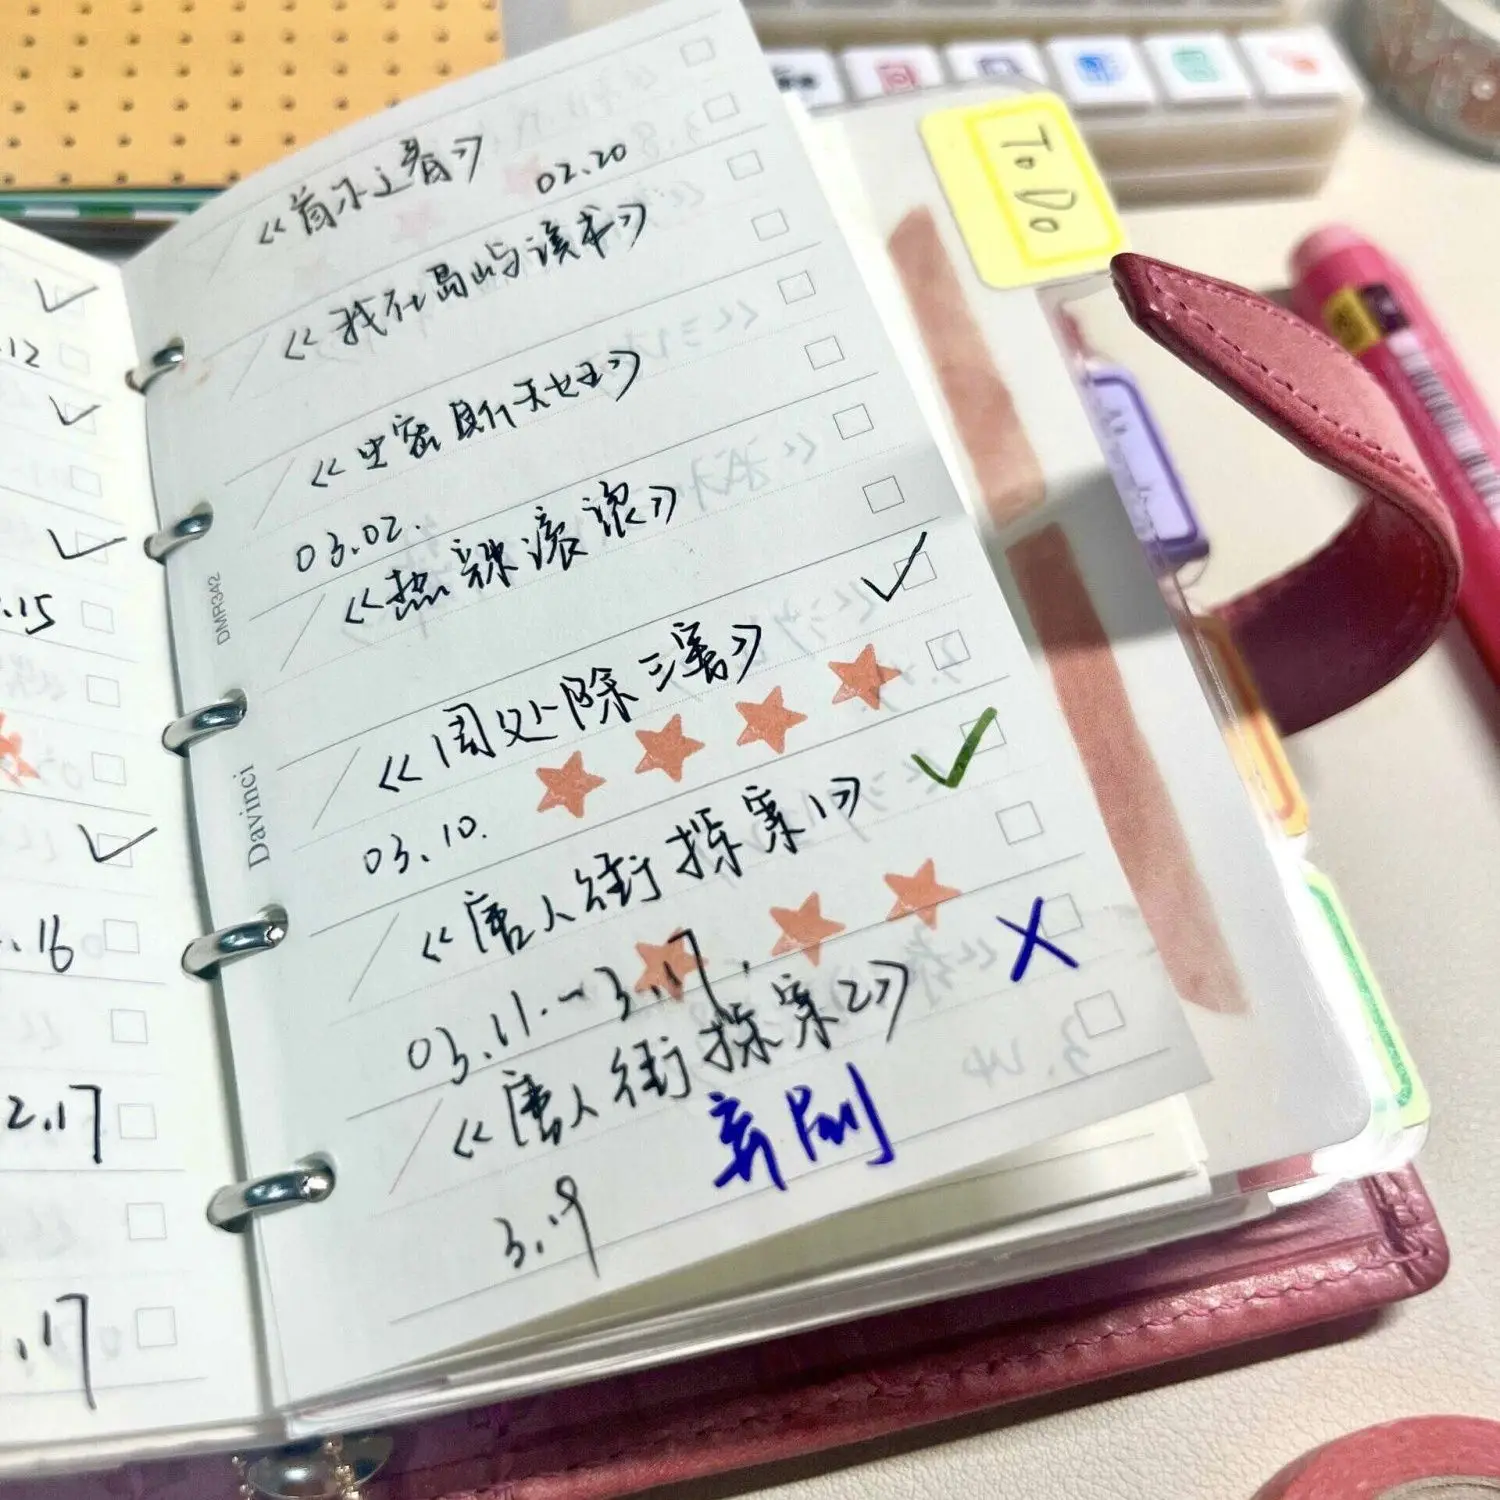 .12
.15
.16
2.17
.17
DMR342
Davinci
《首尔之春》
02.20
《我在岛屿读书》
03.02.
《热辣滚滚》
《周处除三害》
03.10.
《唐人街探案1》
03.11.-3.17.
《唐人街探案2》
弃剧
3.9
To Do